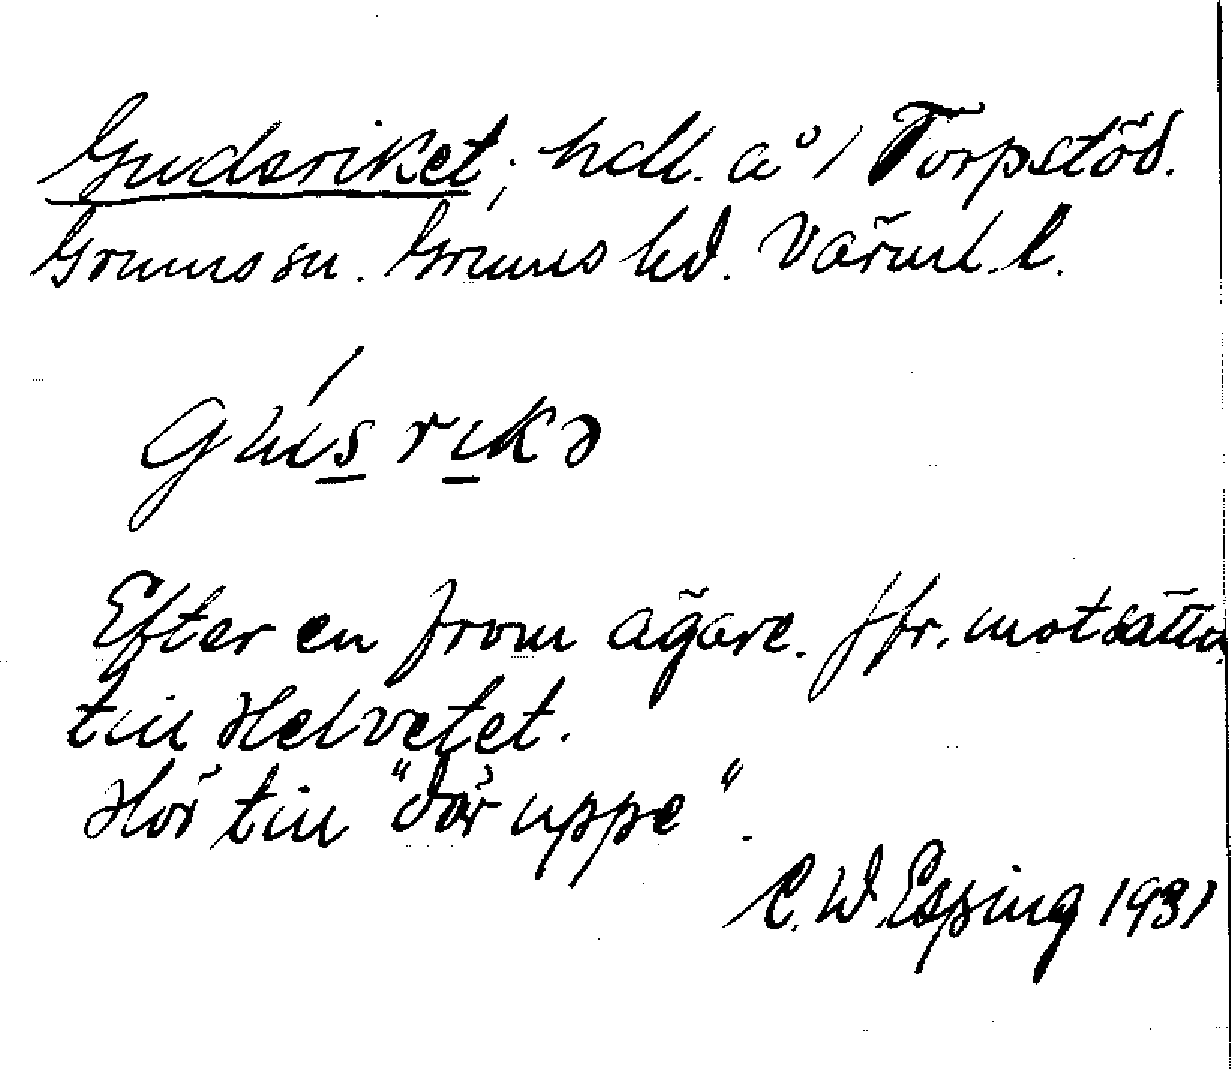 Gudsriket; hdl. å 1 Torpstöd.
Grums sn. Grums hd. Värml. l.
Efter en from ägare. Jfr. motsatts.
till Helvetet.
Hör till "där uppe".
C. W. Esping 1931